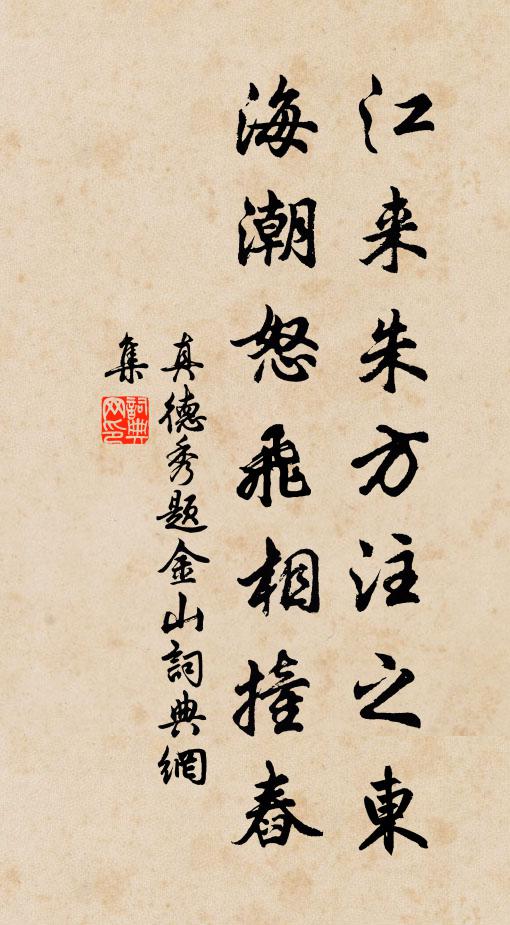 江来朱方注之東
海潮怒飛相撞舂
真德秀题金山詞典網
集
詞典网印